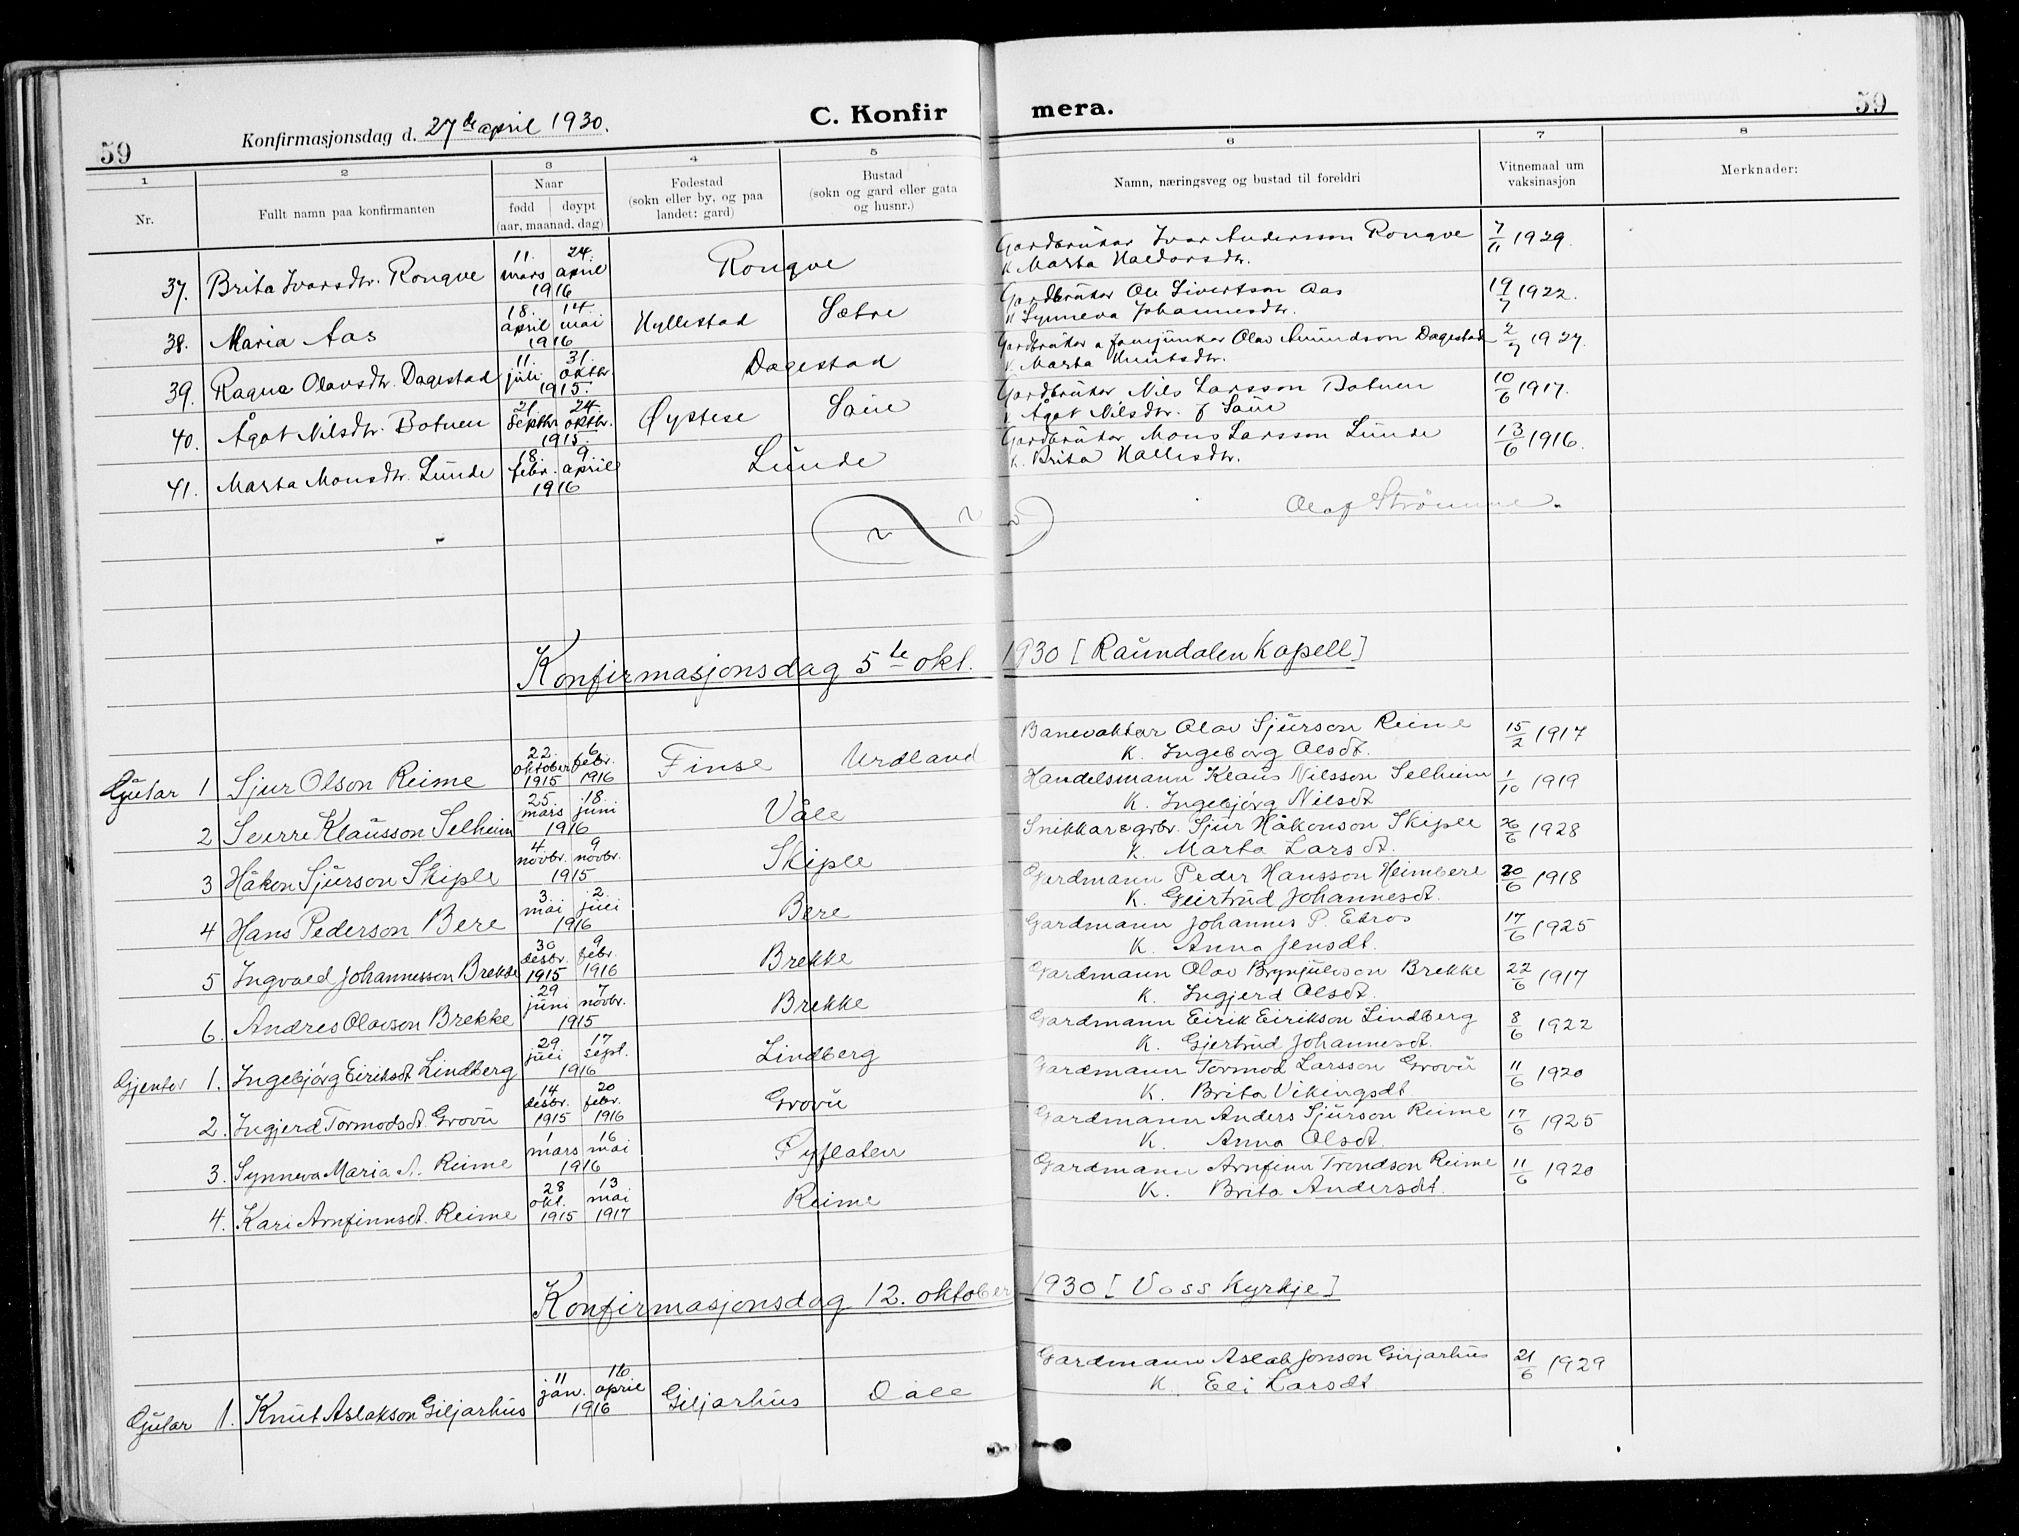 59
Konfirmasjonsdag d. 27de april 1930.
C. Konfirmera.
59
1 2 3 4 5 6 7 8
Nr.
Fullt namn paa konfirmanten
Naar
fødd døypt
(aar, maanad, dag)
Fødestad
(sokn eller by, og paa
landet: gard)
Bustad
(sokn og gard eller gata
og husnr.)
Namn, næringsveg og bustad til foreldri
Vitnemaal um
vaksinasjon
Merknader:
37. Brita Ivarsdtr. Rongve 11. mars 24. april 1916 Rongve Gardbrukar Ivar Anderson Rongve 7/11 1929.
K Marta Haldorsdtr.
38. Maria Aas 18. april 14. mai 1916 Hyllestad Sætre Gardbrukar Ole Sivertson Aas 19/7 1922.
K Synneva Johannesdtr.
39. Ragna Olavsdtr. Dagestad 11. juli 31. oktbr. 1915. Dagestad Gardbrukar a fanejunker Olav Amundson Dagestad 2/7 1927.
K. Marta Knutsdtr.
40. Ågot Nilsdtr. Botnen 21. septbr. 24. oktbr. 1915. Øystese Saue Gardbrukar Nils Larsson Botnen 10/6 1917.
K Ågot Nilsdtr. f Saue
41. Marta Monsdtr. Lunde 18. febr. 9. april 1916 Lunde Gardbrukar Mons Larsson Lunde 13/6 1916.
K. Brita Hallesdtr.
Olaf Strömme.
Konfirmasjonsdag 5te okt. 1930 [Raundalen Kapell]
Gutar 1 Sjur Olson Reime 22. oktober 1915 6 febr. 1916 Finse Urdland Banevaktar Olav Sjurson Reime 15/2 1917
K. Ingeborg Olsdt.
2 Sverre Klausson Selheim 25. mars 18. juni 1916 Våle Handelsmann Klaus Nilsson Selheim 1/10 1919
K. Ingebjörg Nilsdt
3 Håkon Sjurson Skiple 4. novbr. 9 novbr. 1915 Skiple Snikkar & grbr. Sjur Håkonson Skiple 26/6 1928
K. Marta Larsdt.
4 Hans Pederson Bere 3 mai 2. juli 1916 Bere Gardmann Peder Hansson Heimbere 20/6 1918
K. Geirtrud Johannesdt.
5 Ingvald Johannesson Brekke 30 desbr. 1915 9 febr. 1916 Brekke Gardmann Johannes P. Edros 17/6 1925
K. Anna Jensdt.
6. Andres Olavson Brekke 29 juni 7 novbr. 1915 Brekke Gardmann Olav Brynjulvson Brekke 22/6 1917
K. Ingjerd Olsdt.
Gjentor 1. Ingebjörg Eiriksdt Lindberg 29 juli 17 sept. 1916 Lindberg Gardmann Eirik Eirikson Lindberg 8/6 1922
K. Gjertrud Johannesdt.
2. Ingjerd Tormodsdt Grovu 14 desbr. 1915 20 febr. 1916 Grovu Gardmann Tormod Larsson Grovu 11/6 1920
K. Brita Vikingsdt
3. Synneva Maria A. Reime 1 mars 16 mai 1916 Øyflaten Gardmann Anders Sjurson Reime 17/6 1925
K. Anna Olsdt.
4. Kari Arnfinnsdt. Reime 28 okt. 1915 13 mai 1917 Reime Gardmann Arnfinn Trondson Reime 11/6 1920
K. Brita Andersdt.
Konfirmasjonsdag 12. oktober 1930 [Voss Kyrkje]
Gutar 1. Knut Aslakson Giljarhus 11 jan. 16 april 1916 Giljarhus Dale Gardmann Aslak Jonson Giljarhus 21/6 1929
K. Eli Larsdt